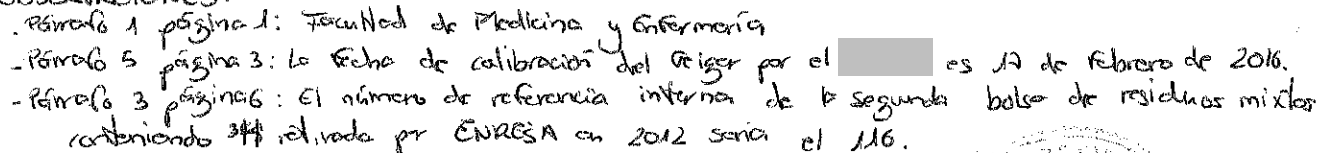 . Párrafo 1 página 1: Facultad de Medicina y Enfermería
- Párrafo 5 página 3: La fecha de calibración del Geiger por el es 17 de febrero de 2016.
- Párrafo 3 página 6: El número de referencia interna de la segunda bolsa de residuos mixtos
conteniendo ³H retirada por ENRESA en 2012 sería el 116.